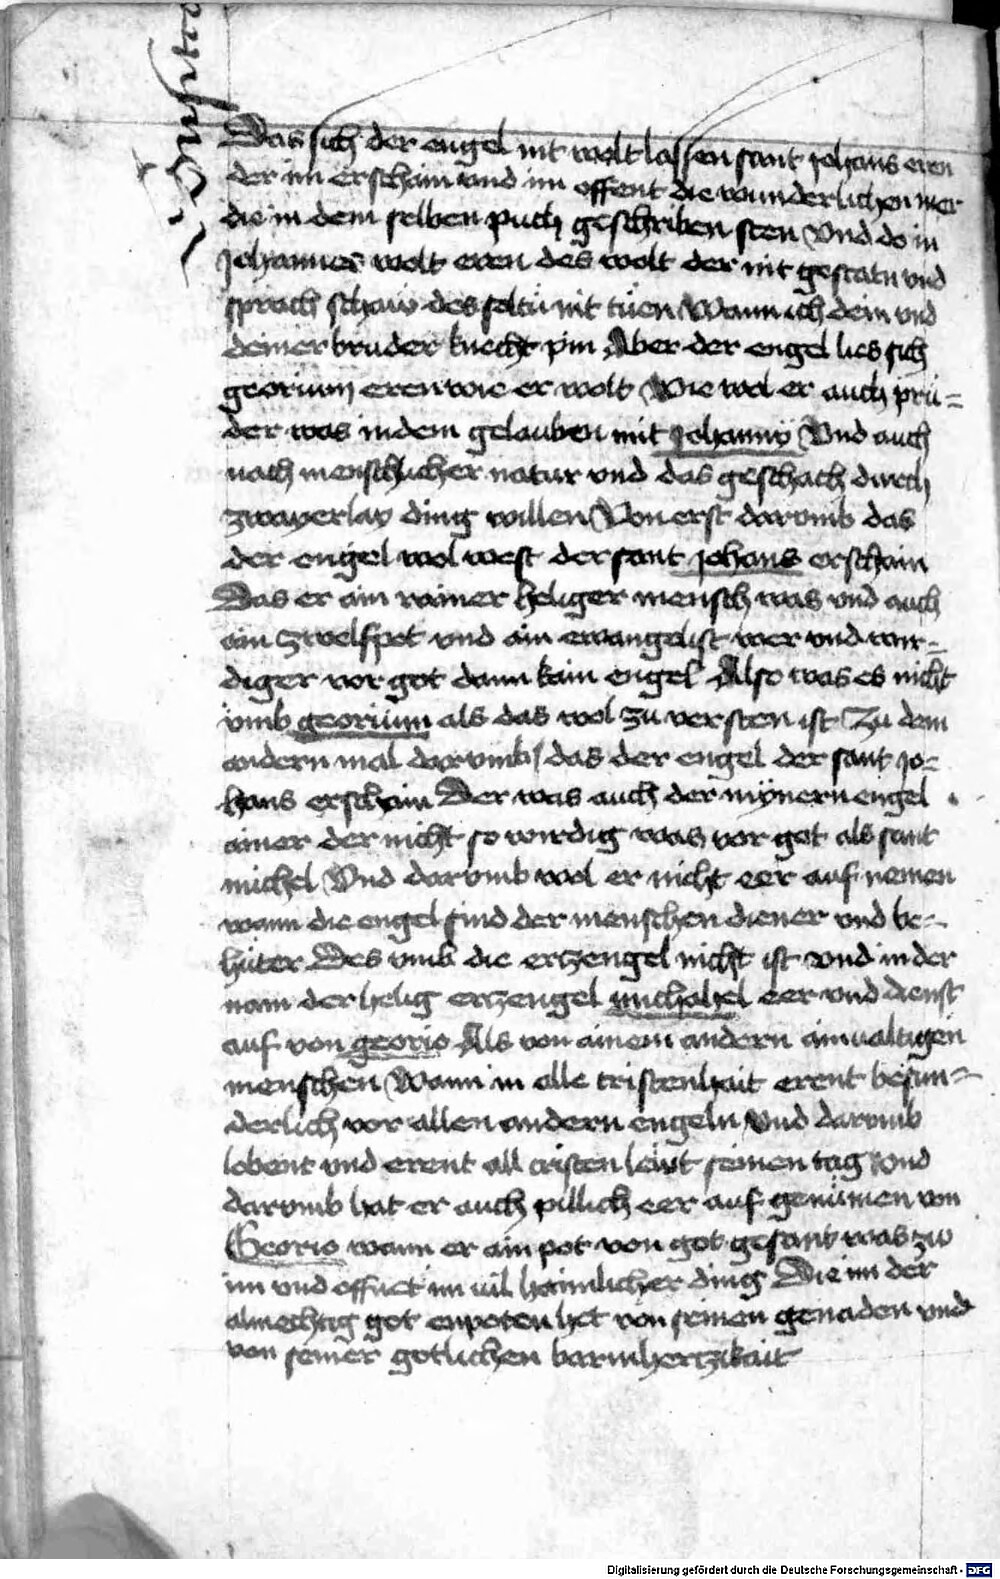 Das sich der engel nit wolt lassen sant johans eren
der im erschain vnd im offent die wunderlichen mer
die in dem selben puch geschriben sten Vnd do in
Johannes wolt eren des wolt der nit gestatn vnd
sprach schaw des soltu nit tuen Wann ich dein vnd
deiner bruder knecht pin Aber der engel lies sich
georium eren wie er wolt Wie wol er auch prü=
der was in dem gelauben mit Johanny Vnd auch
nach menschlicher natur vnd das geschach durch
zwayerlay ding willen Von erst darvmb das
der engel wol west der sant johans erschain
Das er ain rainer heliger mensch was vnd auch
ain zwelfpot vnd ain ewangelist wer vnd wir=
diger vor got dann kain engel Also was es nicht
vmb georium als das wol zu versten ist Zu dem
andern mal darvmb / das der engel der sant jo=
hans erschain Der was auch der mynern engel
ainer der nicht so wirdig was vor got als sant
michel Vnd darvmb wol er nicht eer auf nemen
wann die engel sind der menschen diener vnd be=
hüter Des vmb die erczengel nicht ist vnd in der
nam der helig erczengel michahel eer vnd dienst
auf von georio Als von ainem andern ainualtigen
menschen Wann in alle cristenhait erent besun=
derlich vor allen andern engeln Vnd darvmb
lobent vnd erent all cristen lewt seinen tag Vnd
darvmb hat er auch pillich eer auf genumen von
Georio wann er ain pot von got gesant was zw
im vnd offnet im uil haimlicher ding Die im der
almechtig got enpoten het von seinen genaden vnd
von seiner gotlichen barmhertzikait
Digitalisierung gefördert durch die Deutsche Forschungsgemeinschaft - DFG